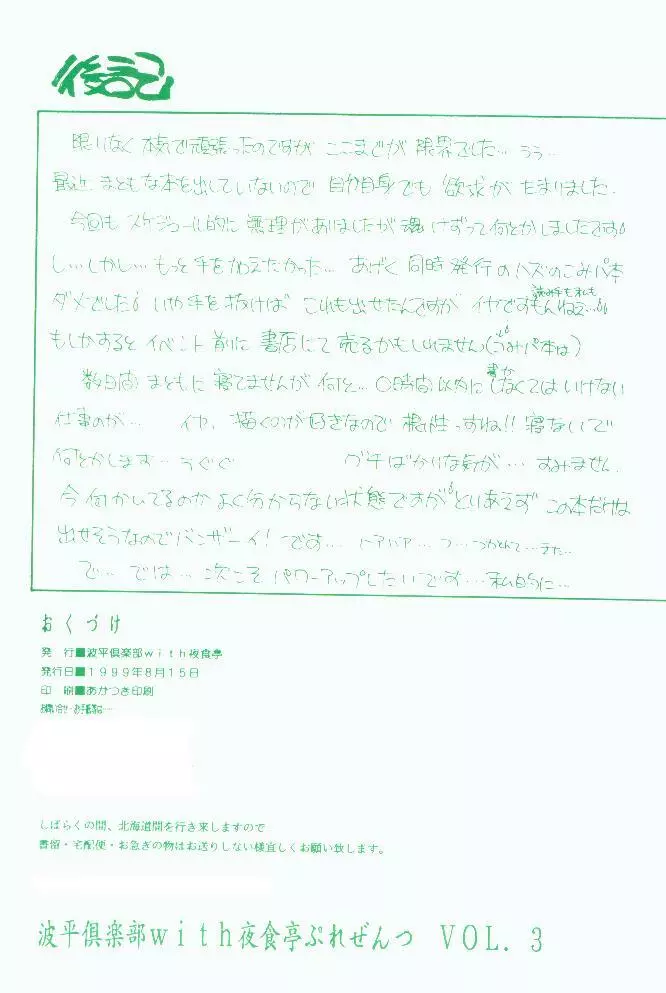 後記
限りなく本気で頑張ったのですが ここまでが 限界でした… うう…
最近、まともな本を出していないので 自分自身でも 欲求が たまりました.
今回も スケジュール的に 無理がありましたが 魂 けずって何とかしましたです
し…しかし… もっと手をかえたかった… あげく 同時発行の ハズのこみパ本
読み手も私も
ダメでした いや手を抜けば これも出せたんですが イヤですもんねぇ…
もしかすると イベント前に 書店にて 売るかもしれません(こみパ本は)
書か
数日間 まともに 寝てませんが 何と… 〇時間以内に しなくてはいけない
仕事のが… イヤ、描くのが好きなので 根性っすね!! 寝ないで
何とかします… うぐぐ グチばかりな気が… すみません.
今何かいてるのか よく分からない状態ですが とりあえず この本だけは
出せそうなのでバンザーイ! です… トアバア… つ… つかれて…きた…
で… では… 次こそ パワーアップしたいです… 私自身に…
おくづけ
発 行■波平倶楽部with夜食亭
発行日■1999年8月15日
印 刷■あかつき印刷
しばらくの間、北海道間を行き来しますので
書留・宅配便・お急ぎの物はお送りしない様宜しくお願い致します。
波平倶楽部with夜食亭ぷれぜんつ VOL. 3